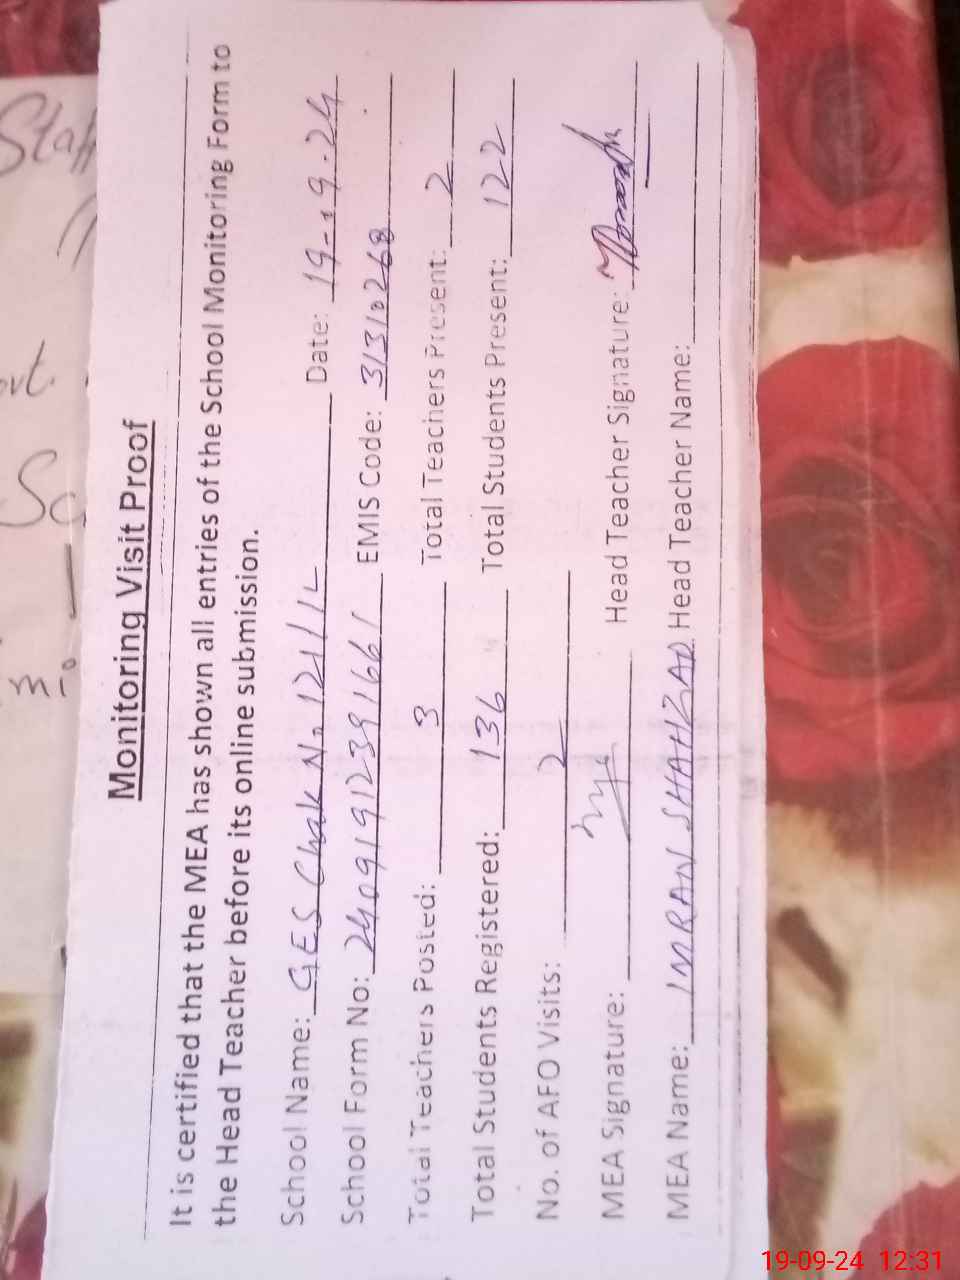 Monitoring Visit Proof
It is certified that the MEA has shown all entries of the School Monitoring Form to
the Head Teacher before its online submission.
School Name: GES Chak No 121/1L Date: 19-9-24
School Form No: 240919123916661 EMIS Code: 31310268
Total Teachers Posted: 3 Total Teachers Present: 2
Total Students Registered: 136 Total Students Present: 122
No. of AFO Visits: 2
MEA Signature: Head Teacher Signature:
MEA Name: IMRAN SHAHZAD Head Teacher Name:
Staff
ovt.
Sc
mi
19-09-24 12:31